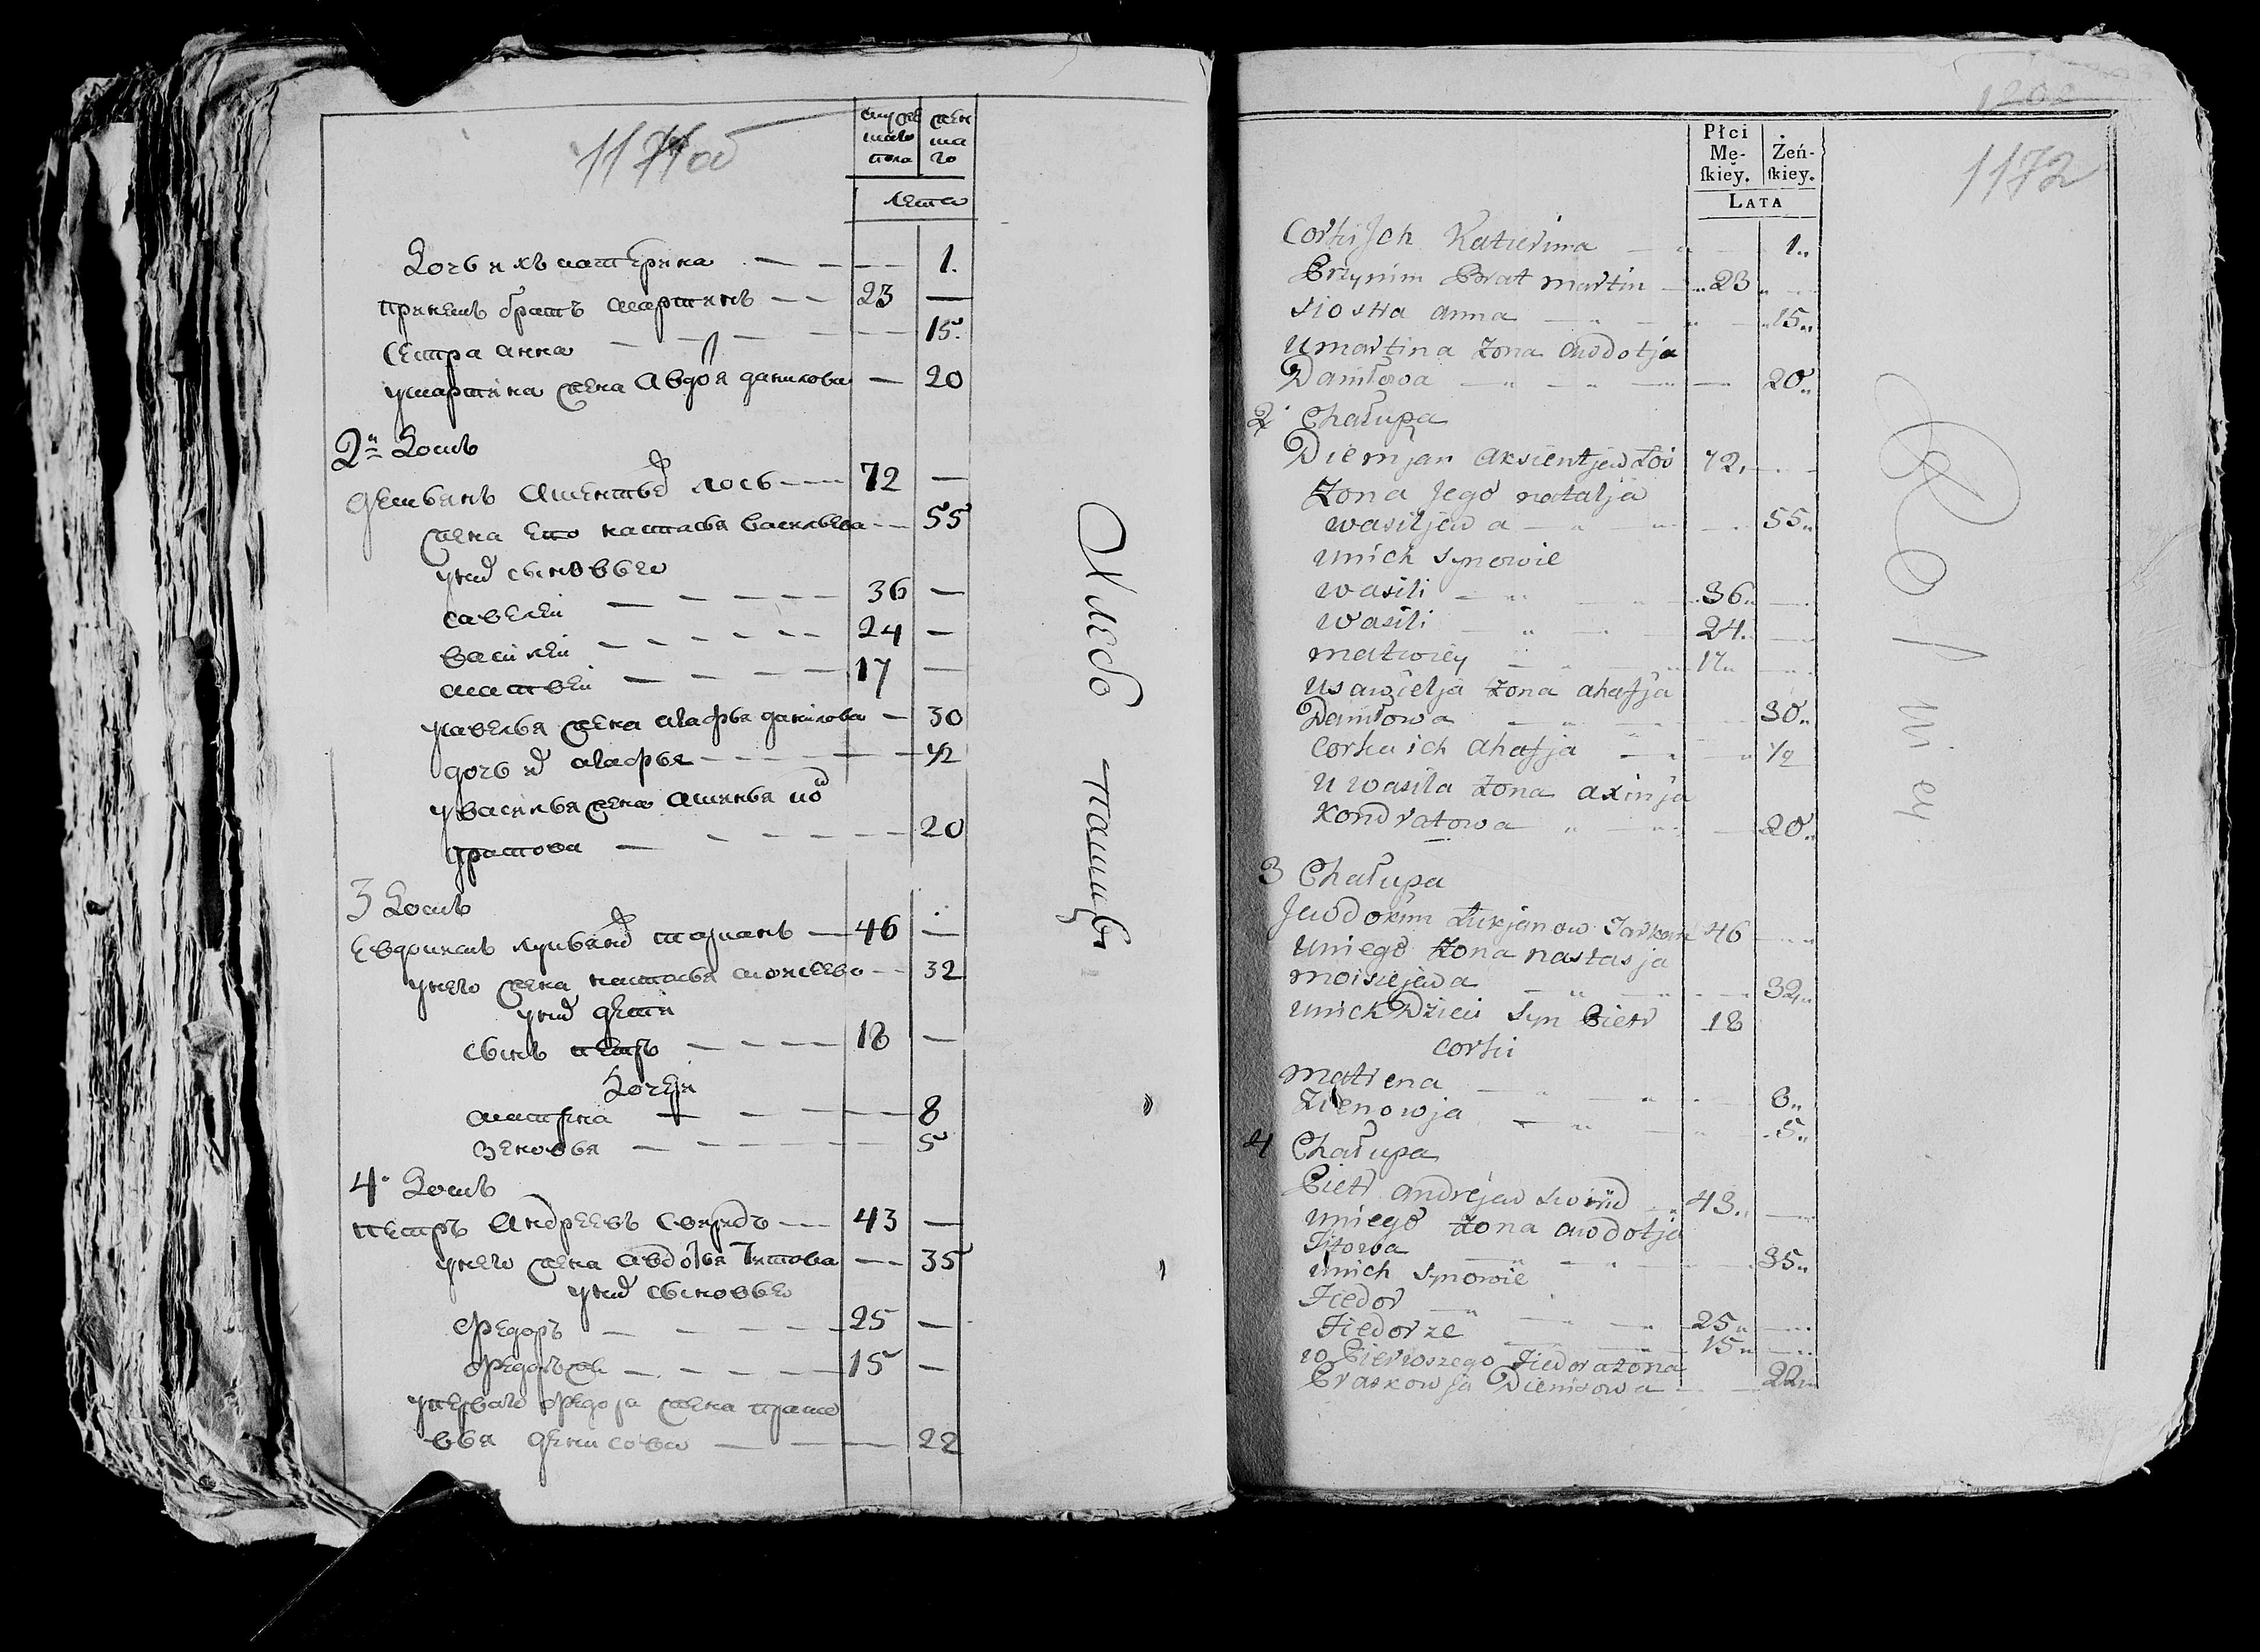 1171 об
мужескаго пола
женскаго
лета
Дочь ихъ катерина 1.
принемъ братъ мартинъ 23 —
сестра анна 15.
умартина жена Авдотя данилова — 20
2й Домъ
демьянъ лось 72 —
жена его настасья васильева 55
уних сыновье
савелей 36 —
василей 24 —
матвей 17 —
усавелья жена агафья данилова — 30
дочь их агафья 1/2
увасилья жена аксинья кон
дратова 20
3 Домъ
Евдокимъ лукьянов 46 —
унего жена настасья моисеева 32
уних дети
сынъ петръ 18 —
Дочери
матрена 8
зеновья 5
4. Домъ
петръ Андреевъ Свиридъ 43 —
унего жена Авдотья Титова 35
уних сыновье
Федоръ 25 —
Федоръже 15 —
упервого Федора жена праско
вья денисова 22
Хлебо пашцы
1202
1172
Płci Mę-ſkiey.
Żeń-ſkiey.
LATA
Corki Jch Katierina 1..
Przynim Brat martin 23
siostra anna 15..
U martina żona awdotja
Daniłowa 20..
2. Chałupa
Diemjan Aksientjew Łoś 72.
Żona Jego natalja
wasiljewa 55..
unich synowie
wasili 36..
wasili 24..
matwiey 17..
U sawielja żona ahafja
Daniłowa 30..
corka ich ahafja 1/2
U wasila żona axinja
Kondratowa 20..
3 Chałupa
Jewdokim Łukjanow 46
Uniego żona nastasja
moisiejewa 32..
unich Dzieci Syn Pietr 18
corki
Matrena 8..
Zienowja 5..
4 Chałupa
Pietr Andrejew Swirid 43..
uniego żona awdotja
Titowa 35..
unich synowie
Fiedor 25..
Fiedor ze 15..
u Pierwszego Fiedora żona
Praskowja Dienisowa 22..
Rolniey